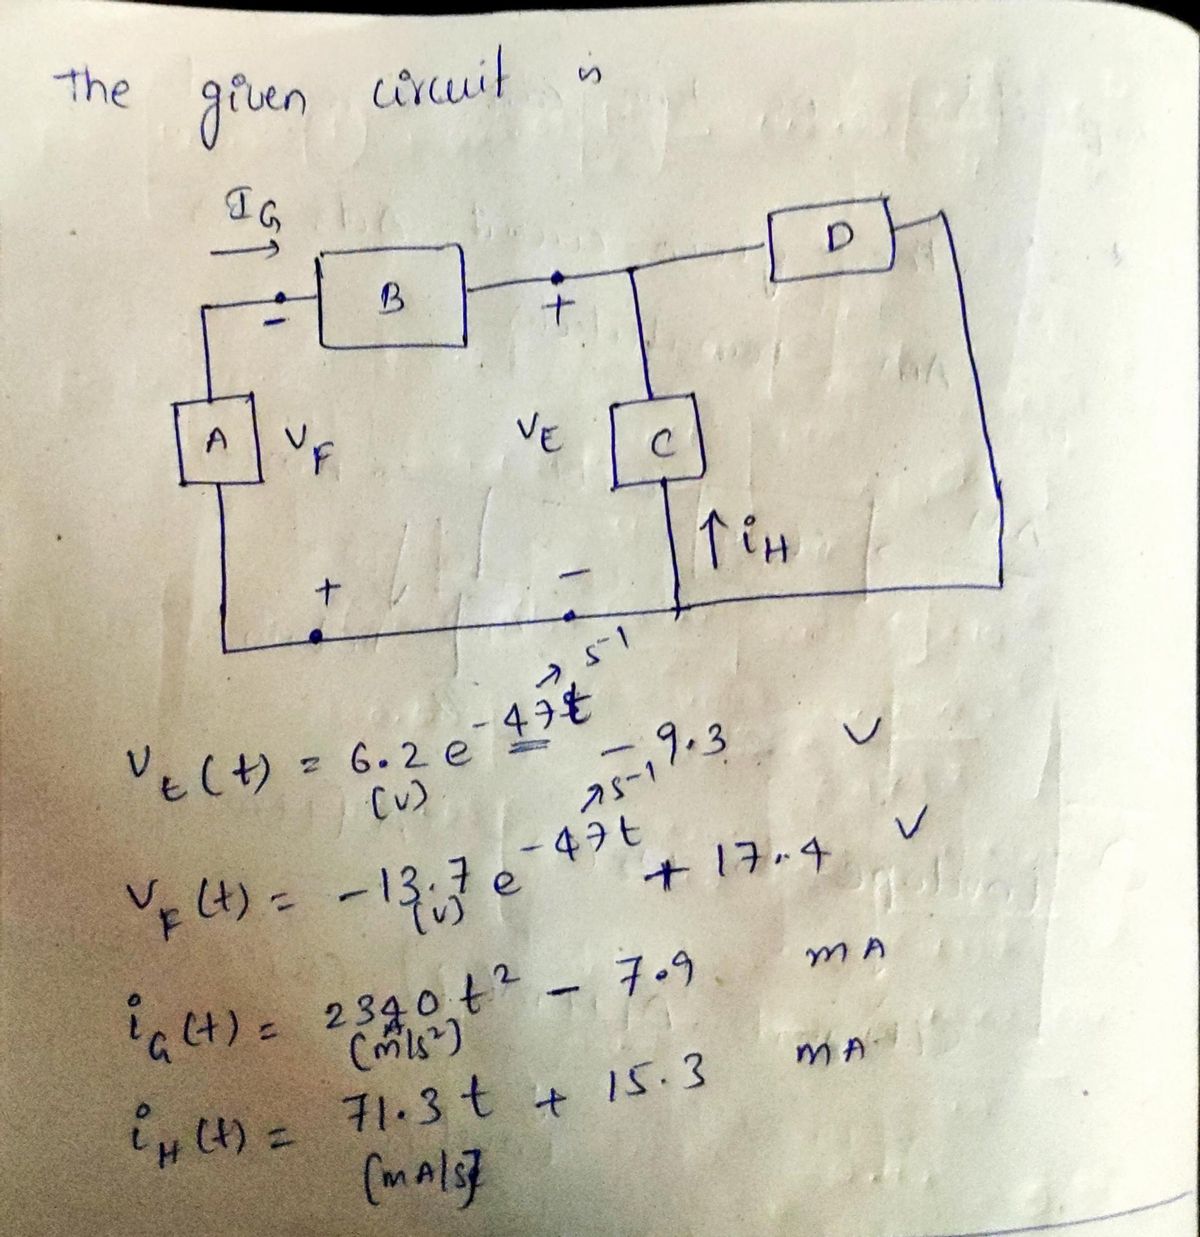 The given circuit is
I_G →
B
D
- +
A V_F V_E C
↑ i_H
+ -
V_E(t) = 6.2 e^{-47t} - 9.3 V
→ s^{-1}
(V)
V_F(t) = -13.7 e^{-47t} + 17.4 V
→ s^{-1}
(V)
i_G(t) = 2340 t^2 - 7.9 mA
(mA/s^2)
i_H(t) = 71.3 t + 15.3 mA
(mA/s)